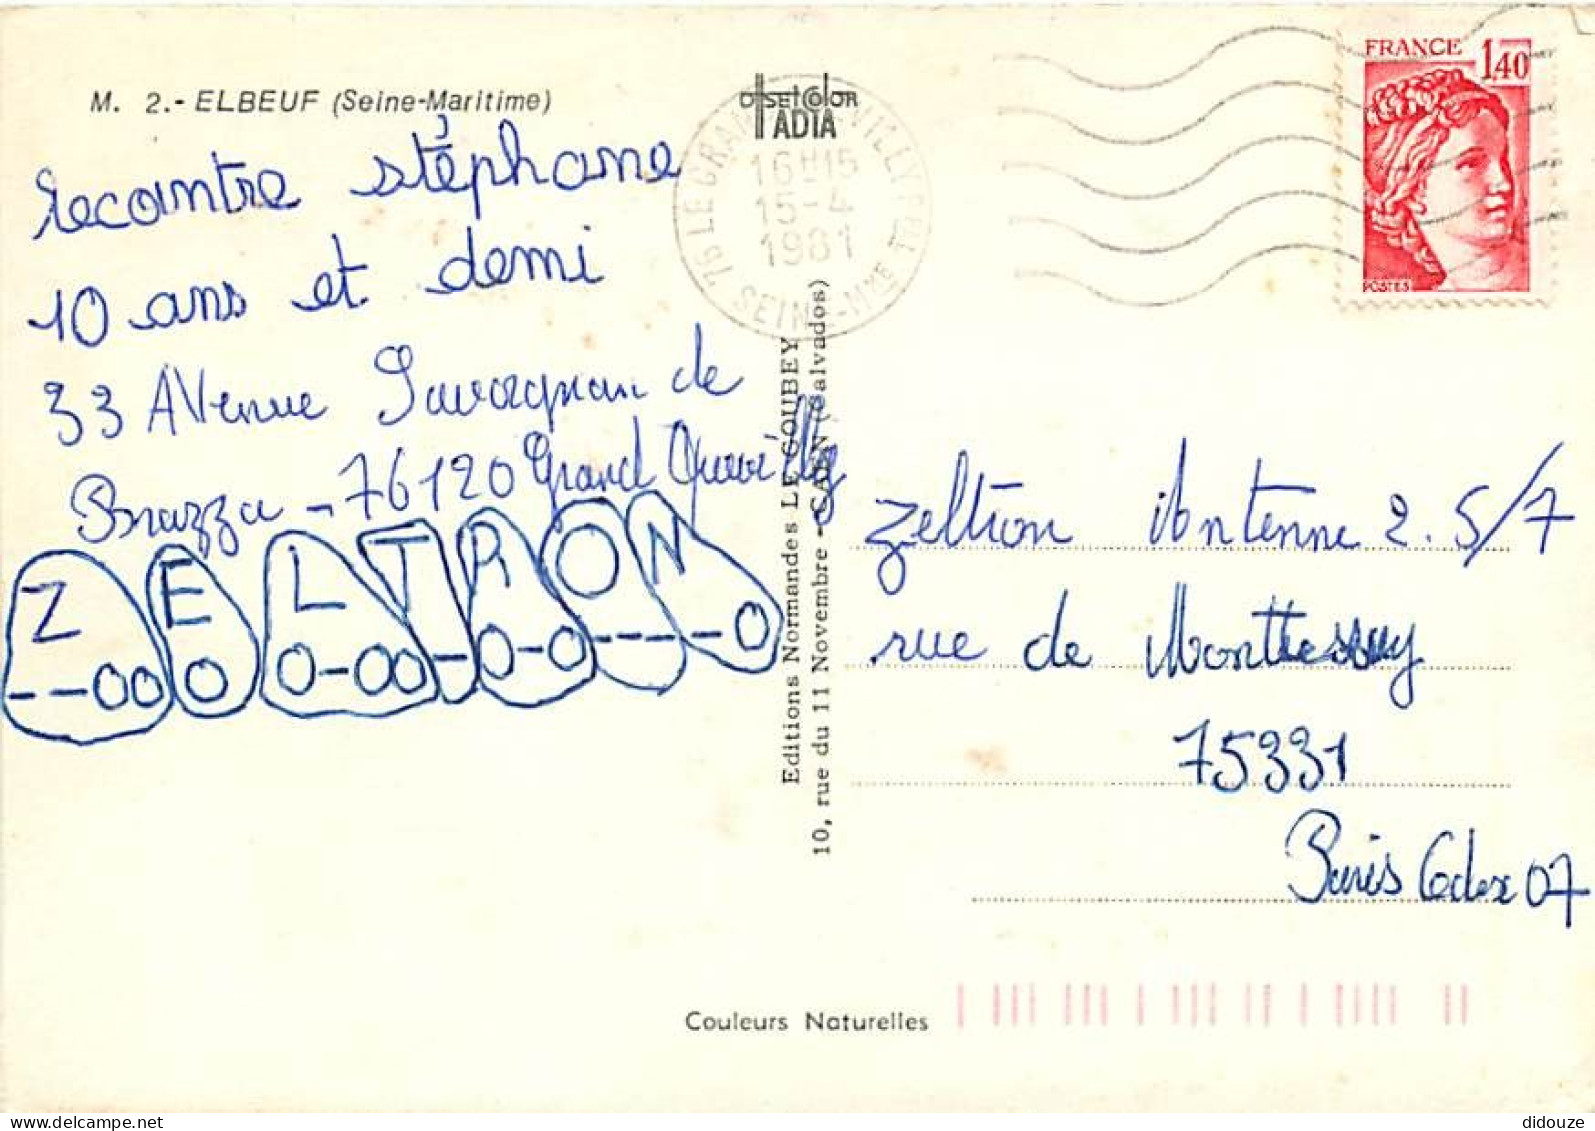 M. 2.- ELBEUF (Seine-Maritime)
OFFSET COLOR
IADIA
recontre stéphane
10 ans et demi
33 AVenue Savorgnan de
Brazza - 76120 Grand Quevilly
Z E L T R O N
--000 0-00-0-0-----0
76 LE GRAND QUEVILLY PPAL
16H15
15-4
1981
SEINE-MME
FRANCE 1,40
POSTES
Editions Normandes LE GOUBEY
10, rue du 11 Novembre - CAEN (Calvados)
Zeltron Antenne 2. 5/7
rue de Monttessuy
75331
Paris Cedex 07
Couleurs Naturelles
delcampe.net
didouze